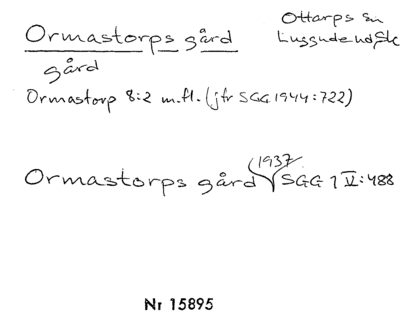 Ormastorps gård
Ottarps sn
Luggude hd, Sk
gård
Ormastorp 8:2 m.fl. (jfr SGG 1944:722)
1937
Ormastorps gård SGG 1 V:488
Nr 15895